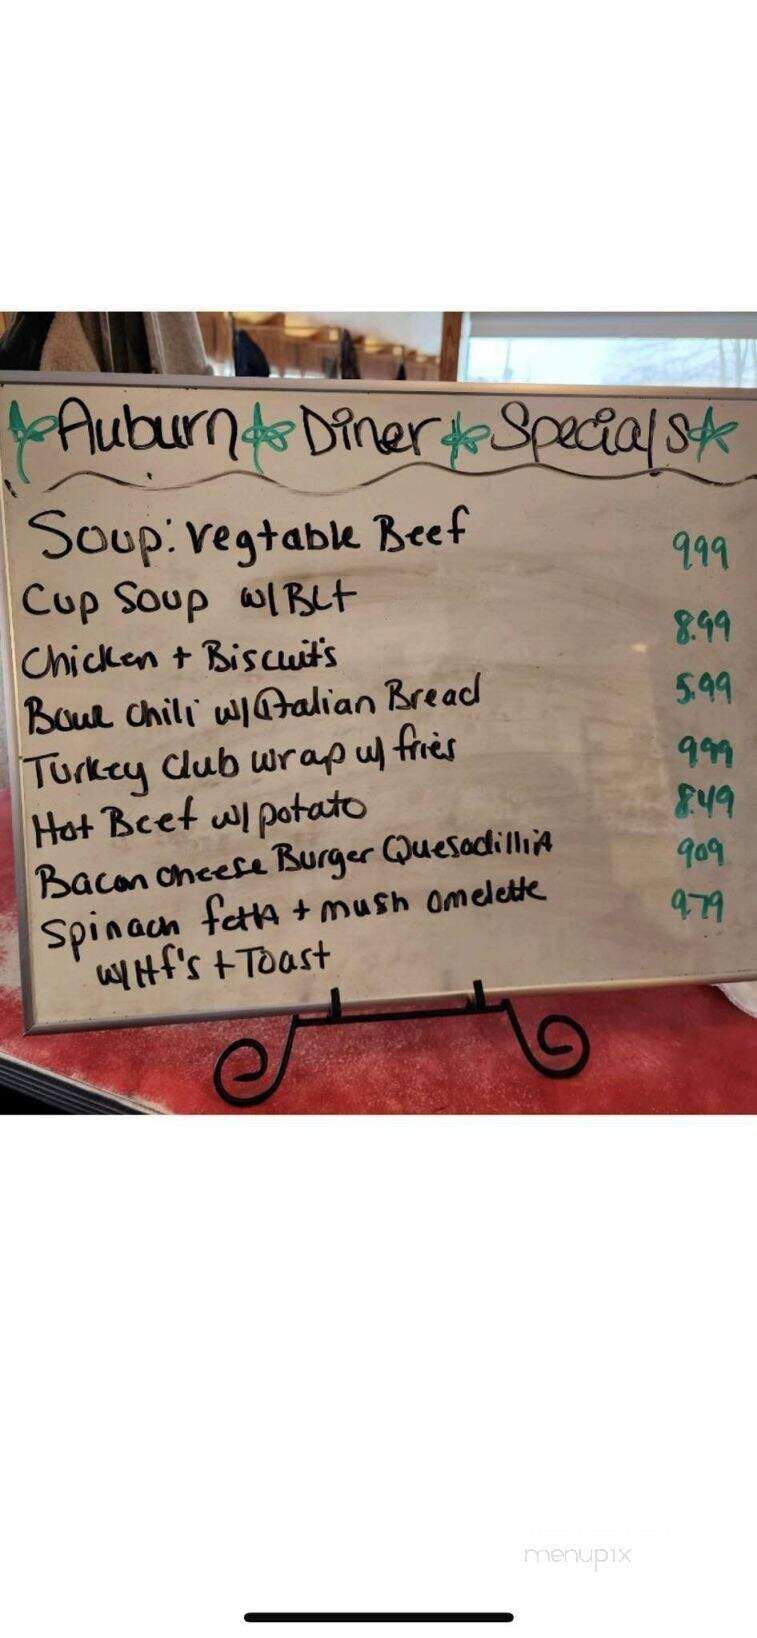 Auburn Diner Specials
Soup: Vegtable Beef
999
Cup Soup w/ BLt
8.99
Chicken + Biscuit's
5.99
Bowl Chili w/ Italian Bread
999
Turkey Club wrap w/ fries
8.49
Hot Beef w/ potato
909
Bacon cheese Burger Quesadillia
979
Spinach fetta + mush omelette
w/ Hf's + Toast
menupix